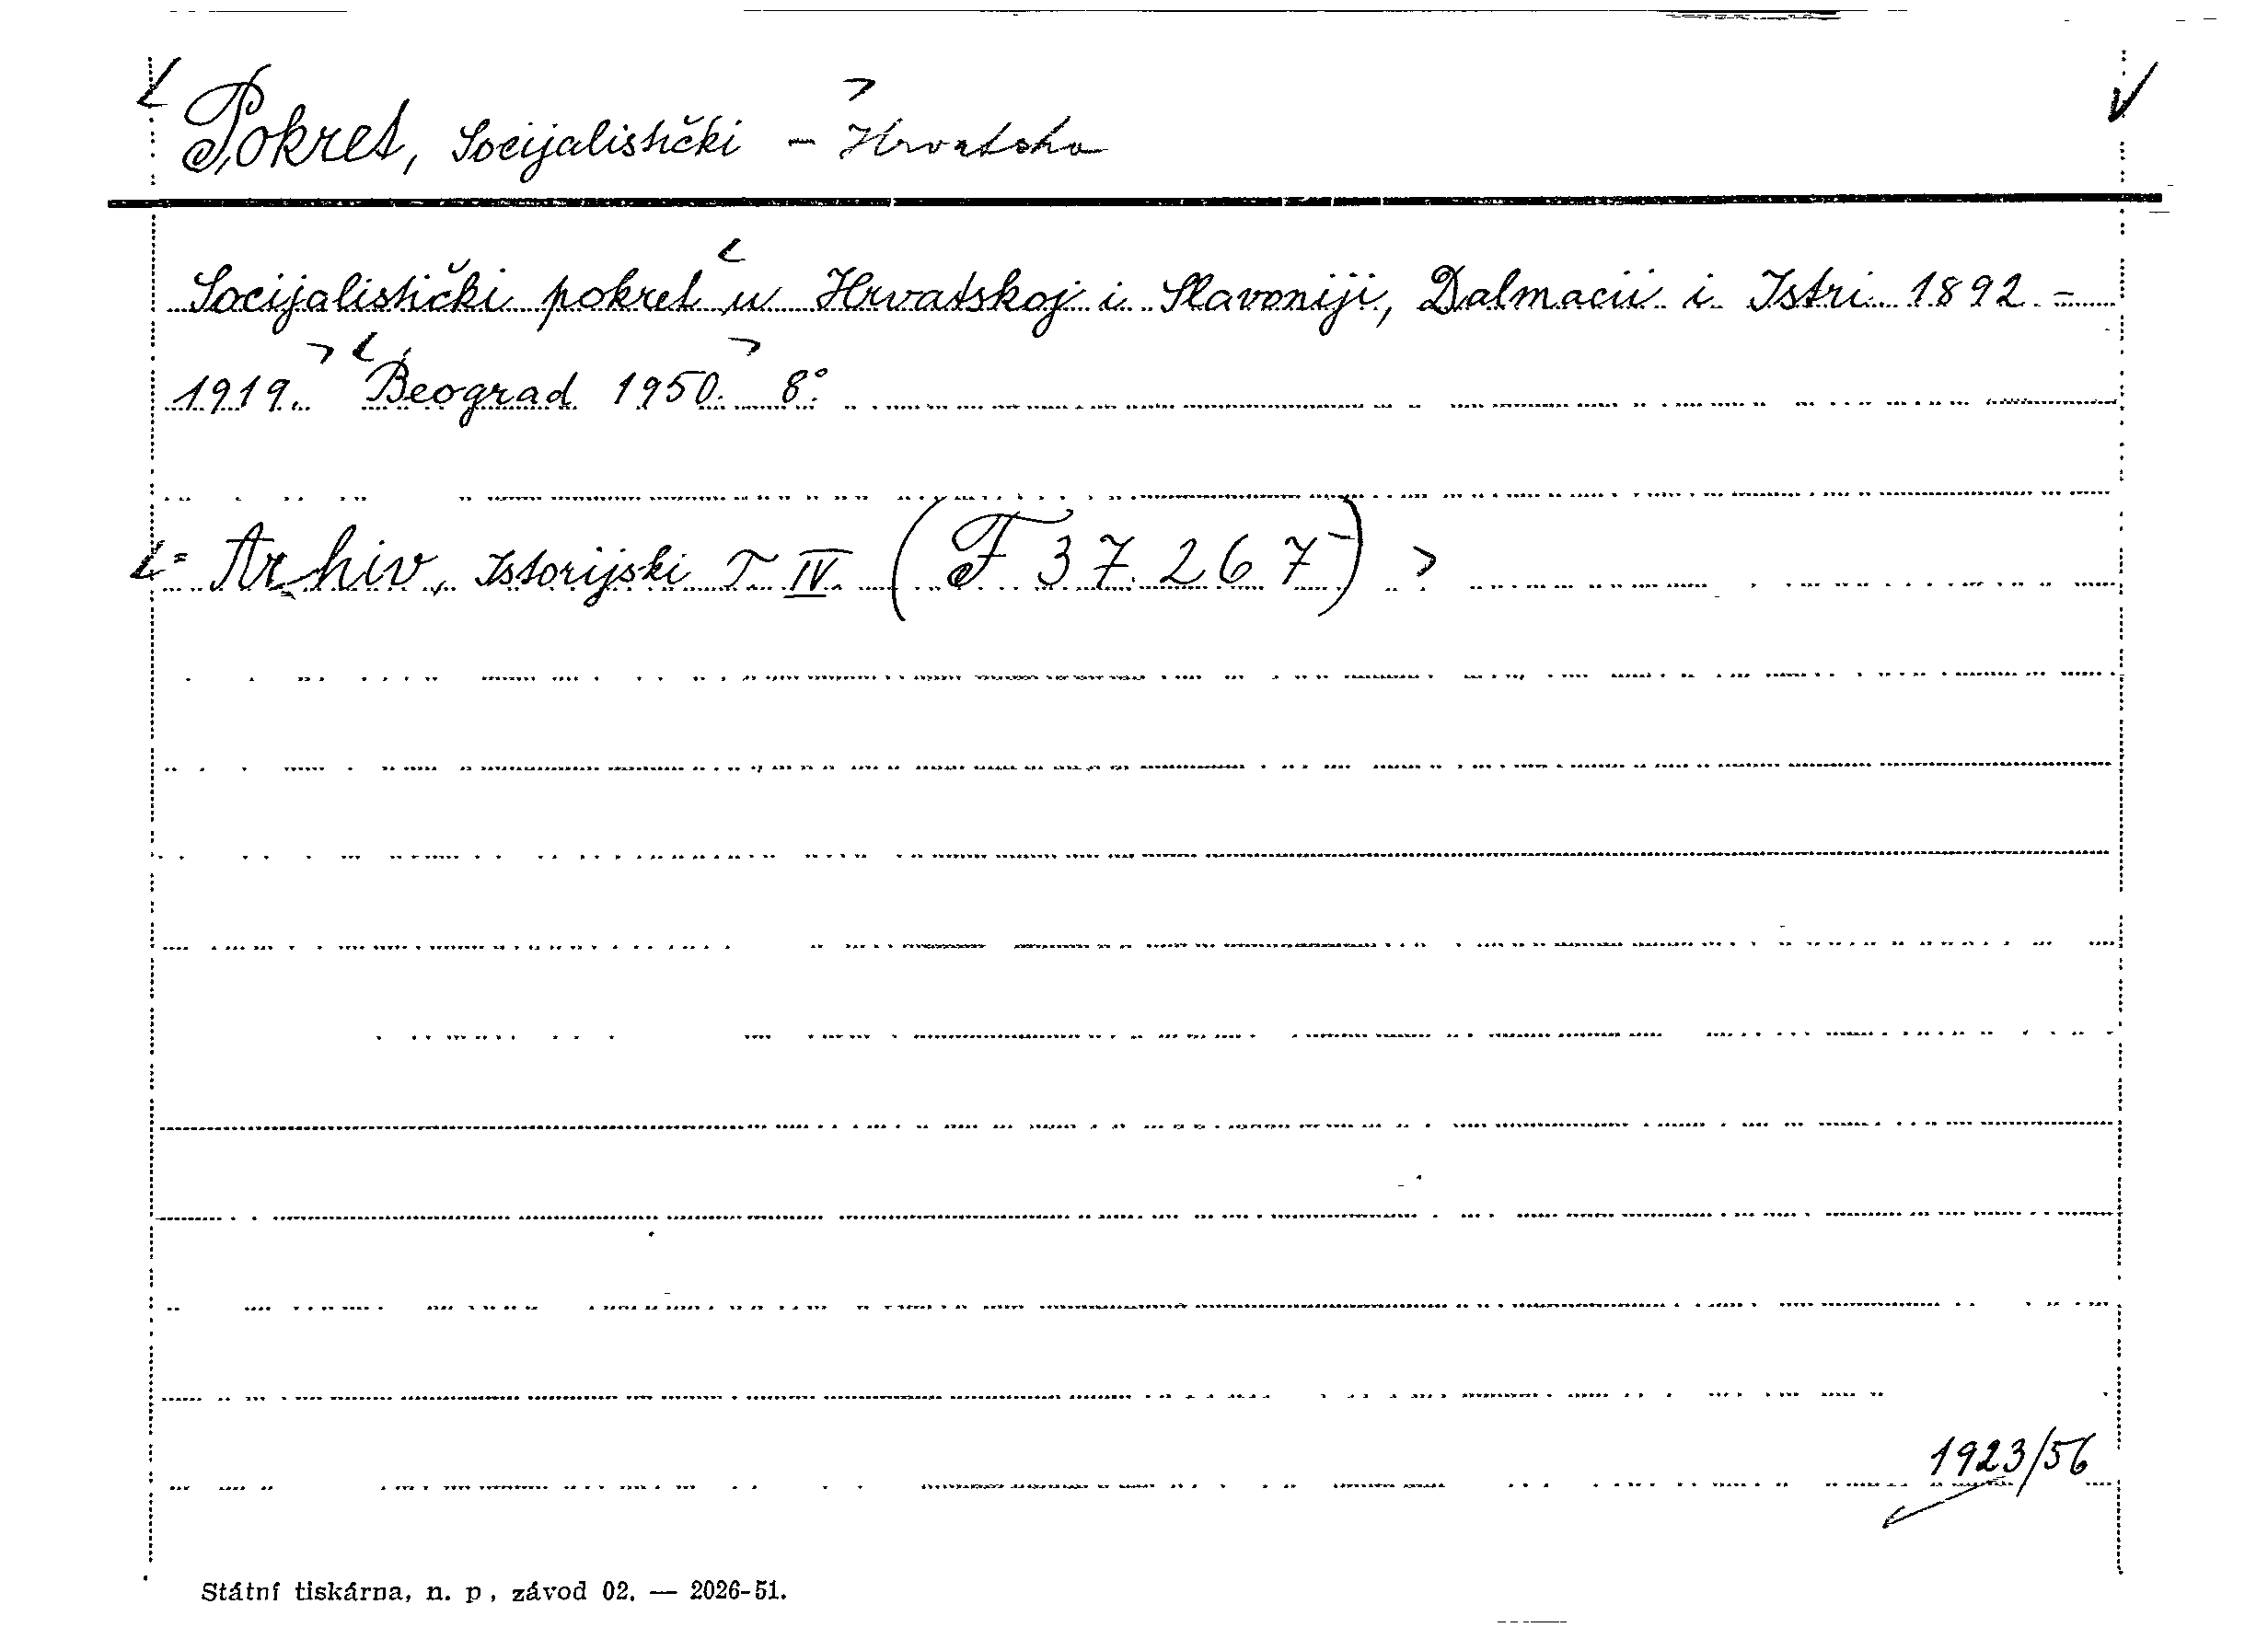 Pokret, Socijalistički - Hrvatska
Socijalistički pokret u Hrvatskoj i Slavoniji, Dalmacii i Istri 1892 -
1919. Beograd 1950. 8°.
= Arhiv, Istorijski T. IV. (F 37.267)
1923/56
Státní tiskárna, n. p., závod 02. — 2026-51.